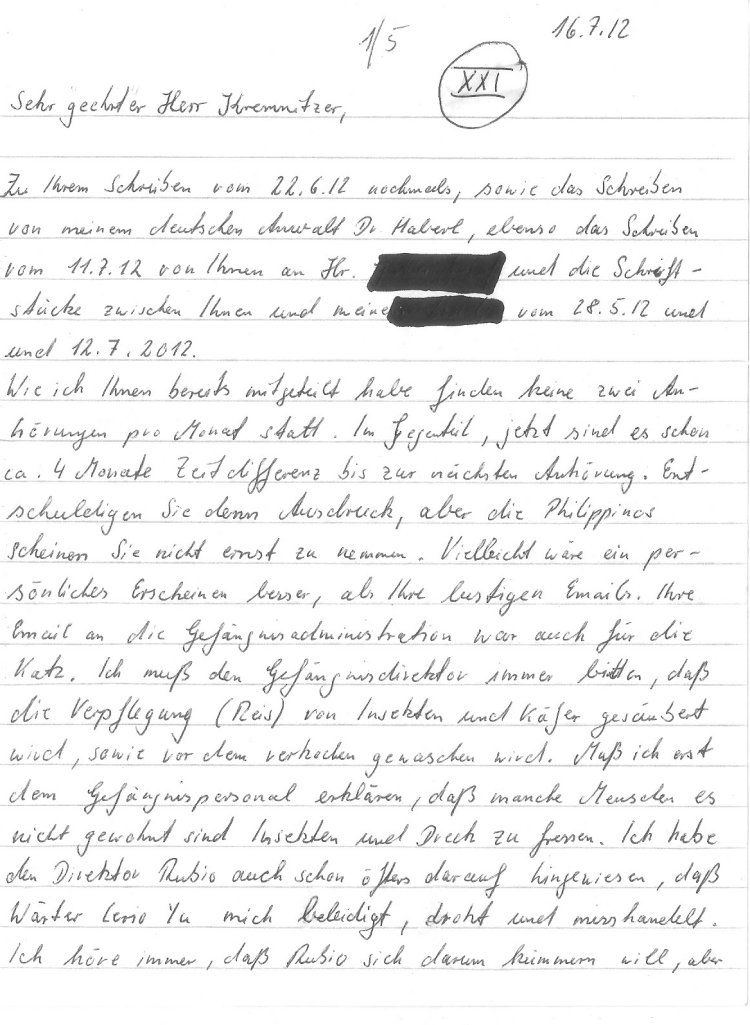 16.7.12
1/5
XXI
Sehr geehrter Herr Kremnitzer,
Zu Ihrem Schreiben vom 22.6.12 nochmals, sowie das Schreiben
von meinem deutschen Anwalt Dr. Haberl, ebenso das Schreiben
vom 11.7.12 von Ihnen an Hr. und die Schrift-
stücke zwischen Ihnen und meine vom 28.5.12 und
und 12.7.2012.
Wie ich Ihnen bereits mitgeteilt habe finden keine zwei An-
hörungen pro Monat statt. Im Gegenteil, jetzt sind es schon
ca. 4 Monate Zeitdifferenz bis zur nächsten Anhörung. Ent-
schuldigen Sie denn Ausdruck, aber die Philippinos
scheinen Sie nicht ernst zu nemmen. Vielleicht wäre ein per-
sönliches Erscheinen besser, als Ihre lustigen Emails. Ihre
Email an die Gefängnisadministration war auch für die
Katz. Ich muß den Gefängnisdirektor immer bitten, daß
die Verpflegung (Reis) von Insekten und Käfer gesäubert
wird, sowie vor dem verkochen gewaschen wird. Muß ich erst
dem Gefängnispersonal erklären, daß manche Menschen es
nicht gewohnt sind Insekten und Dreck zu fressen. Ich habe
den Direktor Rubio auch schon öfters darauf hingewiesen, daß
Wärter Yu mich beleidigt, droht und misshandelt.
Ich höre immer, daß Rubio sich darum kümmern will, aber